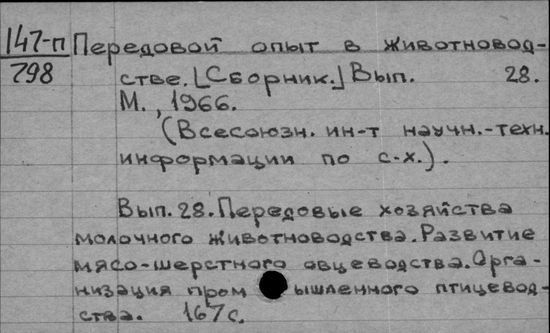 147-п Передовой опыт в животновод-
798 стве. [Сборник.] Вып. 28.
М., 1966.
(Всесоюзн. ин-т научн.-техн.
информации по с.-х.).
Вып. 28. Передовые хозяйства
молочного животноводства. Развитие
мясо-шерстного овцеводства. Орга-
низация пром ышленного птицевод-
ства. 167 с.